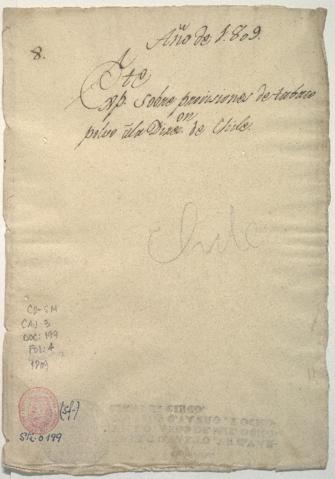 8.
Año de 1809.
Expte
Sobre provisiones de tabaco
polvo á la Diron. de Chile.
Chile
CO-SM
CAJ: 3
DOC: 199
FOL: 4
1809
(sf.)
STA-0199